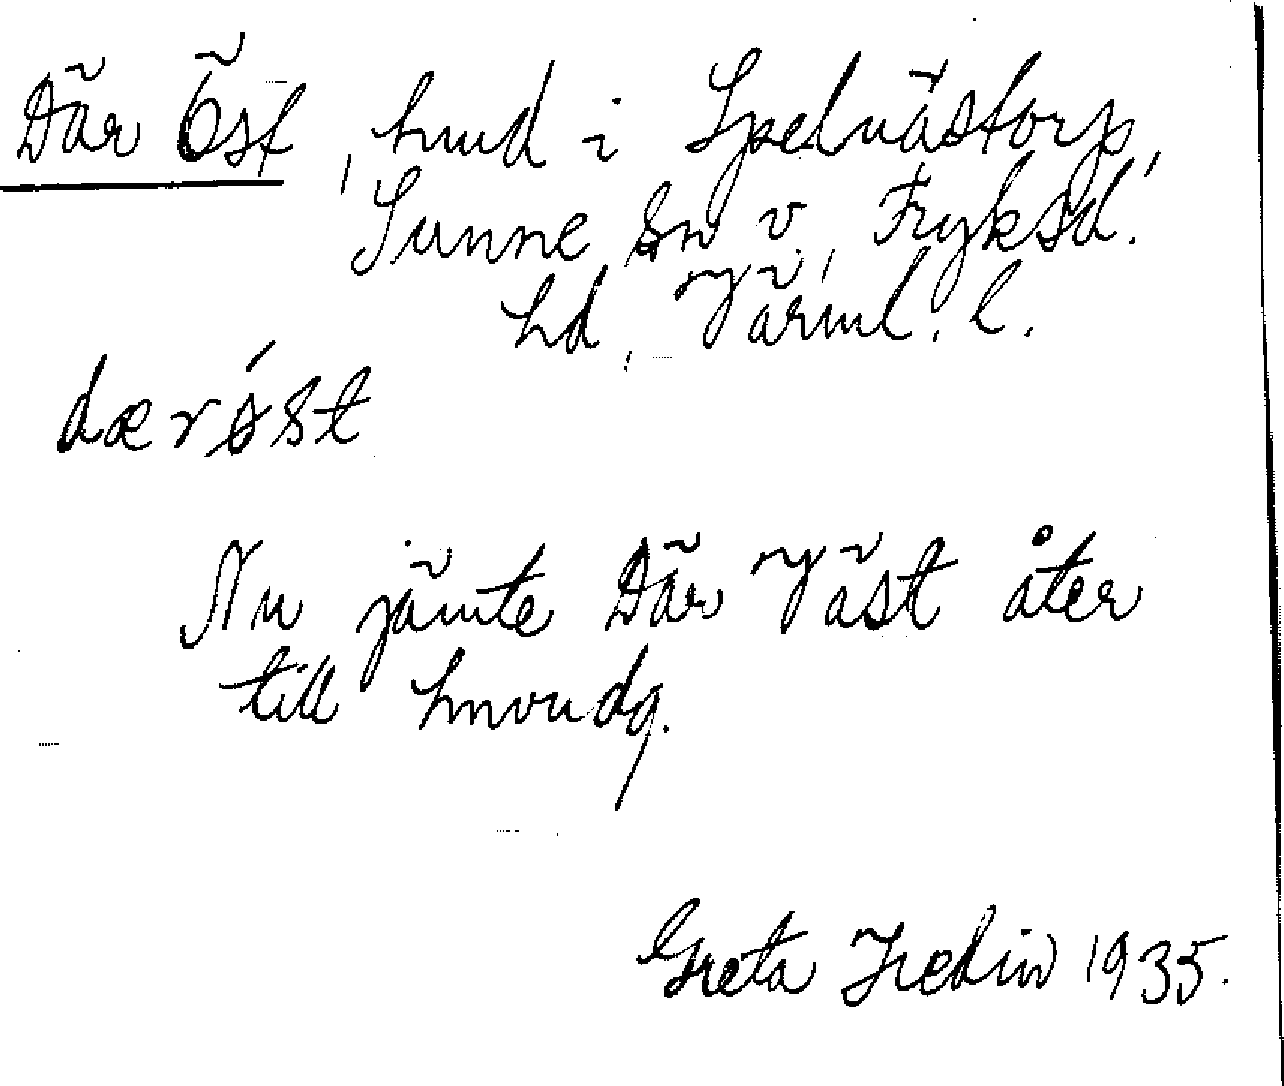 Där Öst, hmd i Spelnästorp,
Sunne sn v., Fryksd.
hd, Värml. l.
dærǿst
Nu jämte Där Väst åter
till hmvudg.
Greta Hedin 1935.